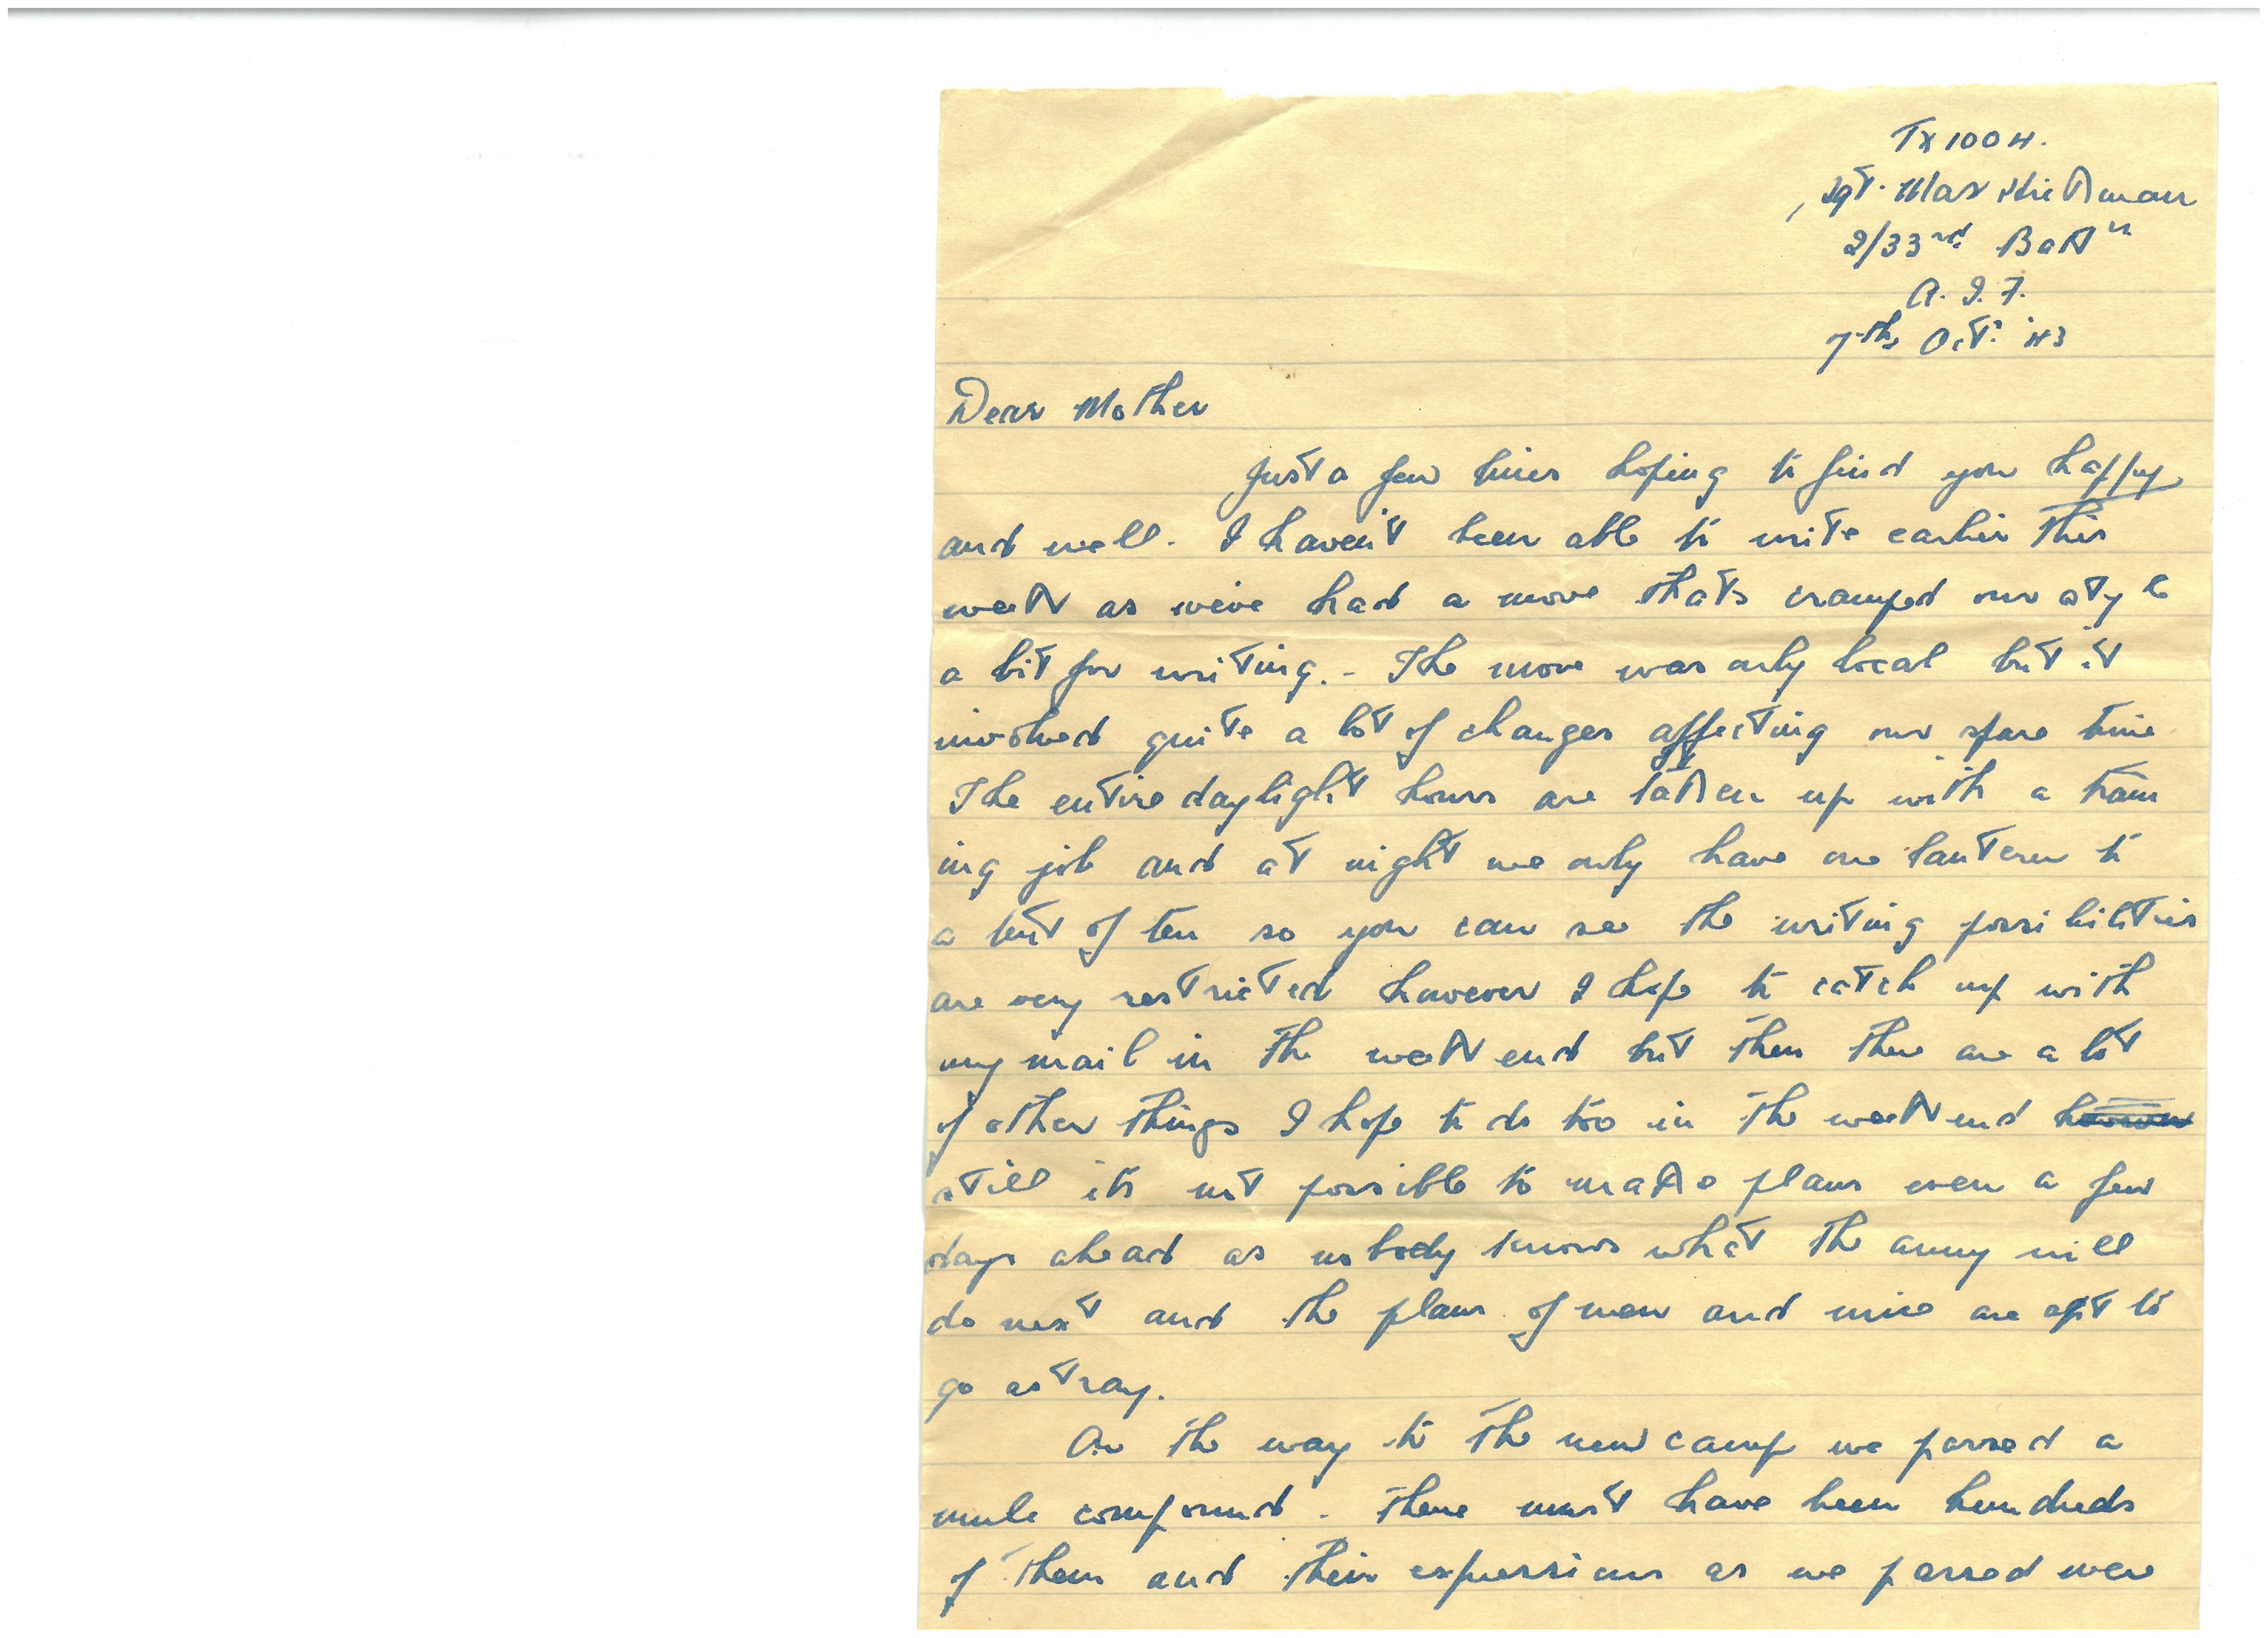 TX1004.
Sgt. Max Hickman
2/33rd Battn
A.I.F.
7th Oct. '43
Dear Mother
Just a few lines hoping to find you happy
and well. I haven't been able to write earlier this
week as we've had a move thats cramped our style
a bit for writing. - The move was only local but it
involved quite a lot of changes affecting our spare time
The entire daylight hours are taken up with a train
ing job and at night we only have one lantern to
a tent of ten so you can see the writing possibilities
are very restricted however I hope to catch up with
my mail in the week end but then there are a lot
of other things I hope to do too in the week end however
still its not possible to make plans even a few
days ahead as nobody knows what the army will
do next and the plans of men and mice are apt to
go astray.
On the way to the new camp we passed a
mule compound. There must have been hundreds
of them and their expressions as we passed were